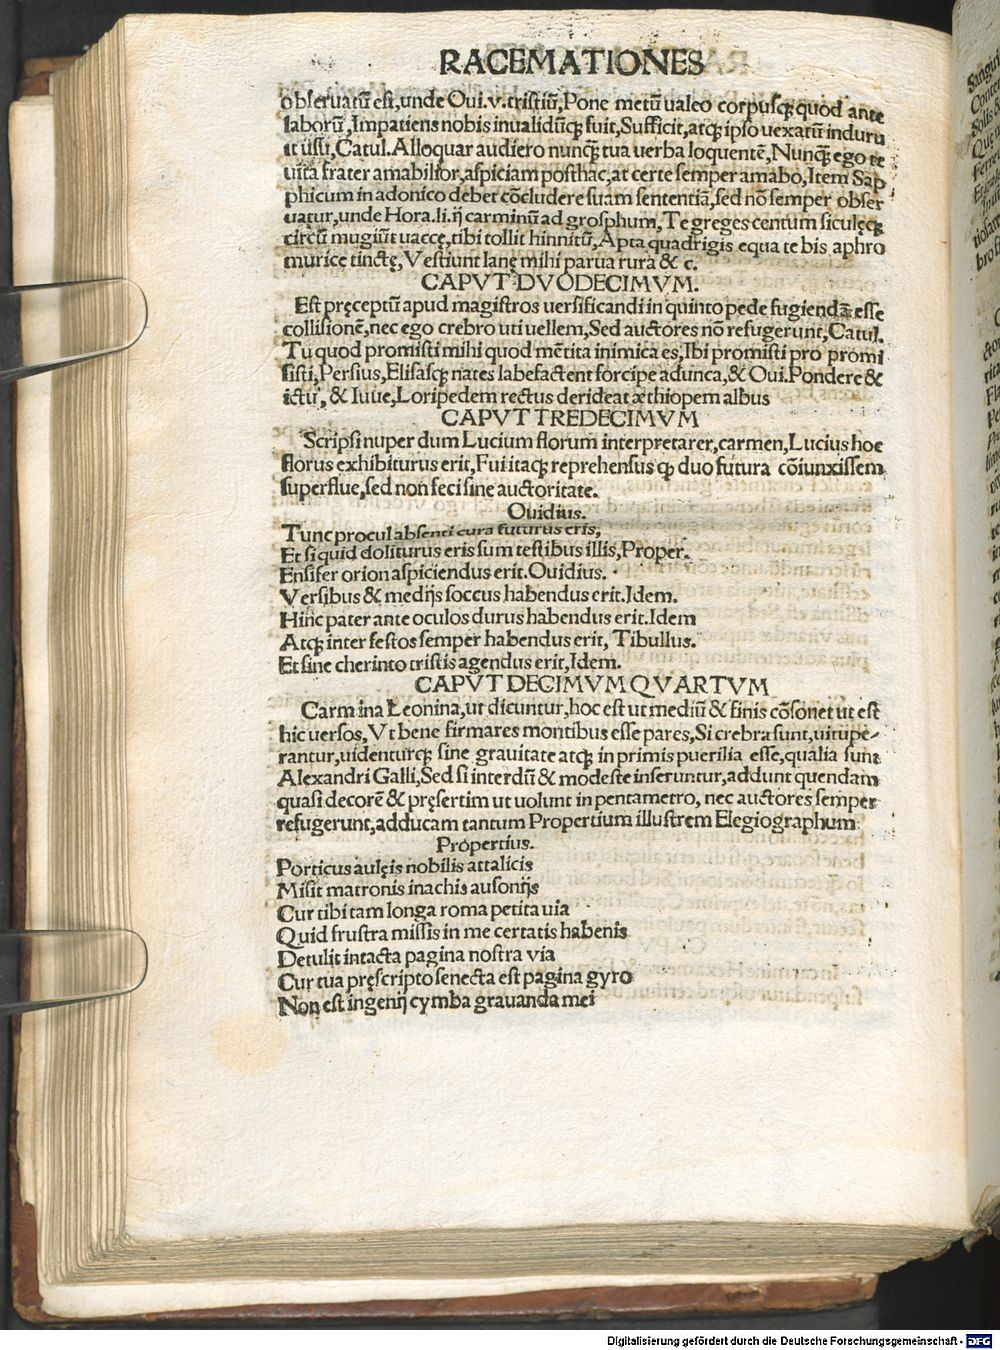 RACEMATIONES
obseruatũ est,unde Oui.v.tristiũ,Pone metũ ualeo corpusꝗ quod ante
laborũ,Impatiens nobis inualidũꝗ fuit,Sufficit,atꝗ ipso uexatũ induru
it usu,Catul.Alloquar audiero nunꝗ̃ tua uerba loquentẽ,Nunꝗ̃ ego te
uita frater amabilior,aspiciam posthac,at certe semper amabo,Item Sap
phicum in adonico debet cõcludere suam sententiã,sed nõ semper obser
uatur,unde Hora.li.ij carminũ ad grosphum,Te greges centum siculęꝗ
circũ mugiũt uaccę,tibi tollit hinnitũ,Apta quadrigis equa te bis aphro
murice tinctę,Vestiunt lanę mihi parua rura & c.
CAPVT DVODECIMVM.
Est pręceptũ apud magistros uersificandi in quinto pede fugiendã esse
collisionẽ,nec ego crebro uti uellem,Sed auctores nõ refugerunt,Catul.
Tu quod promisti mihi quod mẽtita inimica es,Ibi promisti pro promi
sisti,Persius,Elisasꝗ nates labefactent forcipe adunca,& Oui.Pondere &
ictu, & Iuue,Loripedem rectus derideat æthiopem albus
CAPVT TREDECIMVM
Scripsi nuper dum Lucium florum interpretarer,carmen,Lucius hoc
florus exhibiturus erit,Fui itaꝗ reprehensus ꝙ duo futura cõiunxissem
superflue,sed non feci sine auctoritate.
Ouidius.
Tunc procul absenti cura futurus eris,
Et si quid doliturus eris sum testibus illis,Proper.
Ensifer orion aspiciendus erit.Ouidius.
Versibus & medijs soccus habendus erit.Idem.
Hinc pater ante oculos durus habendus erit.Idem
Atꝗ inter festos semper habendus erit, Tibullus.
Et sine cherinto tristis agendus erit,Idem.
CAPVT DECIMVM QVARTVM
Carmina Leonina,ut dicuntur,hoc est ut mediũ & finis cõsonet ut est
hic uersos,Vt bene firmares montibus esse pares,Si crebra sunt,uitupe-
rantur,uidenturꝗ sine grauitate atꝗ in primis puerilia esse,qualia sunt
Alexandri Galli,Sed si interdũ & modeste inseruntur,addunt quendam
quasi decorẽ & pręsertim ut uolunt in pentametro, nec auctores semper
refugerunt,adducam tantum Propertium illustrem Elegiographum
Propertius.
Porticus aulęis nobilis attalicis
Misit matronis inachis ausonijs
Cur tibi tam longa roma petita uia
Quid frustra missis in me certatis habenis
Detulit intacta pagina nostra via
Cur tua pręscripto senecta est pagina gyro
Non est ingenij cymba grauanda mei
Digitalisierung gefördert durch die Deutsche Forschungsgemeinschaft - DFG